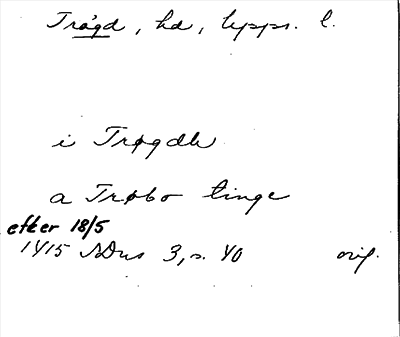 Trögd, hd, Upps. l.
i Trøgdh
a Trøbo tinge
efter 18/5
1415 SDns 3, s. 40 orig.